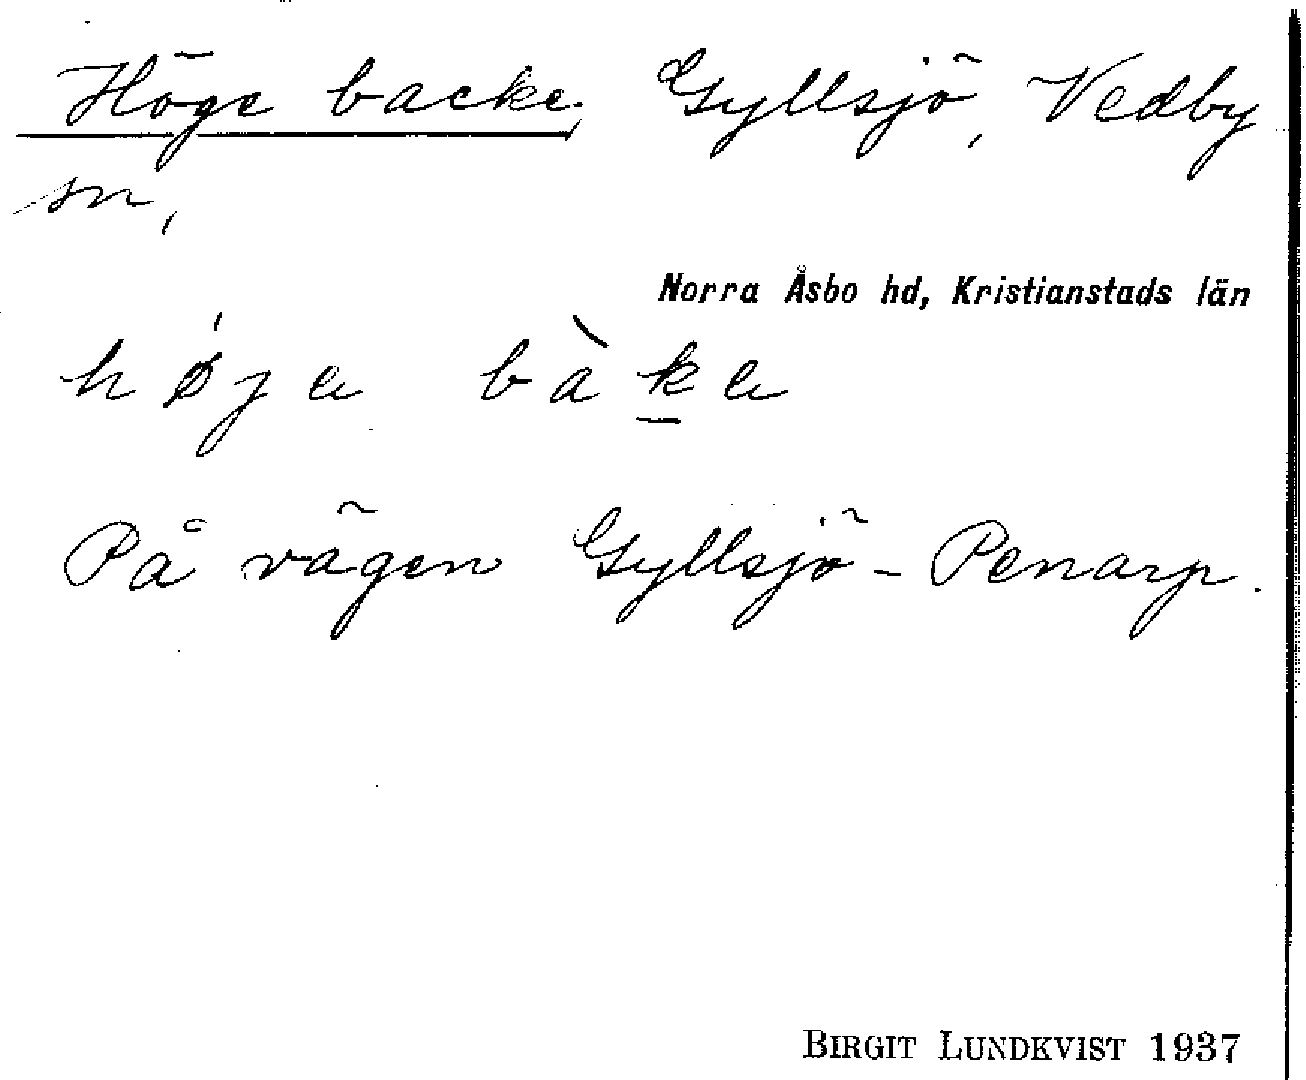 Höge backe, Gyllsjö, Vedby
sn,
Norra Åsbo hd, Kristianstads län
hǿjɐ bàk̲ɐ
På vägen Gyllsjö - Penarp.
BIRGIT LUNDKVIST 1937